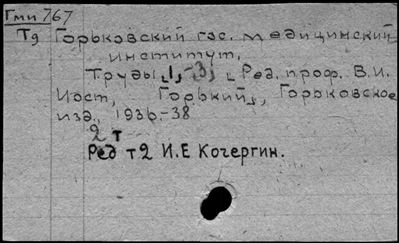 Гми 767
Тд Горьковский гос. медицинский
институт.
Труды [1,-3], Ред. проф. В.И.
Иост, Горький, Горьковское
изд., 1936-38
2 т
Ред т2 И.Е Кочергин.